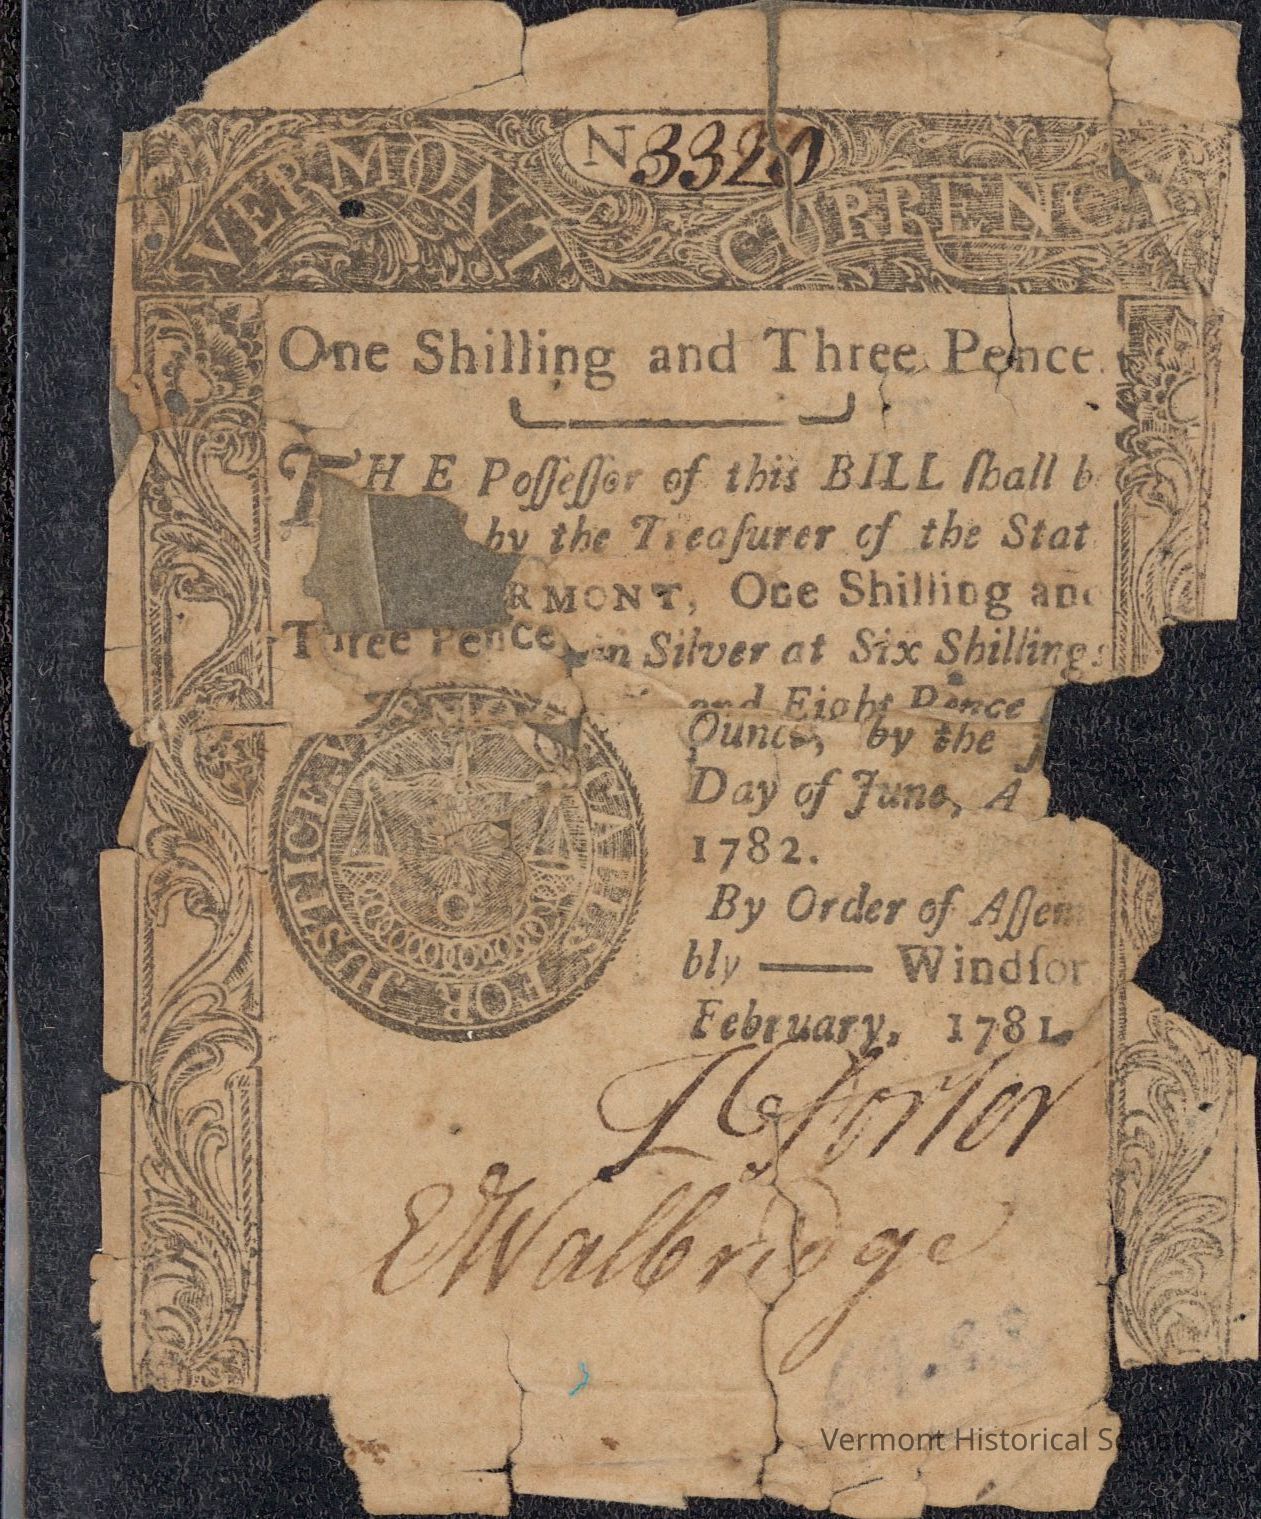 No 3320
VERMONT CURRENC
One Shilling and Three Pence.
THE Poſſeſſor of this BILL ſhall b
by the Treaſurer of the Stat
RMONT, One Shilling and
Three Pence in Silver at Six Shillings
and Eight Pence
Ounce, by the
Day of June, A
1782.
By Order of Aſſem
bly — Windſor
February, 1781.
VERMONT CALLS FOR JUSTICE
E Walbridge
Vermont Historical Society